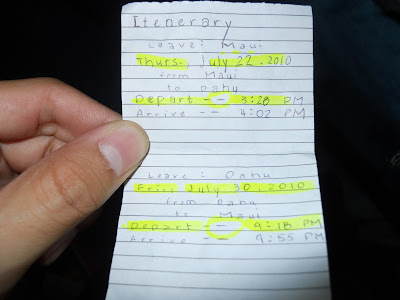 Itenerary
Leave: Maui
Thurs. July 22, 2010
from Maui
to Oahu
Depart -- 3:28 PM
Arrive -- 4:02 PM
Leave: Oahu
Fri. July 30, 2010
from Oahu
to Maui
Depart -- 9:18 PM
Arrive -- 9:55 PM